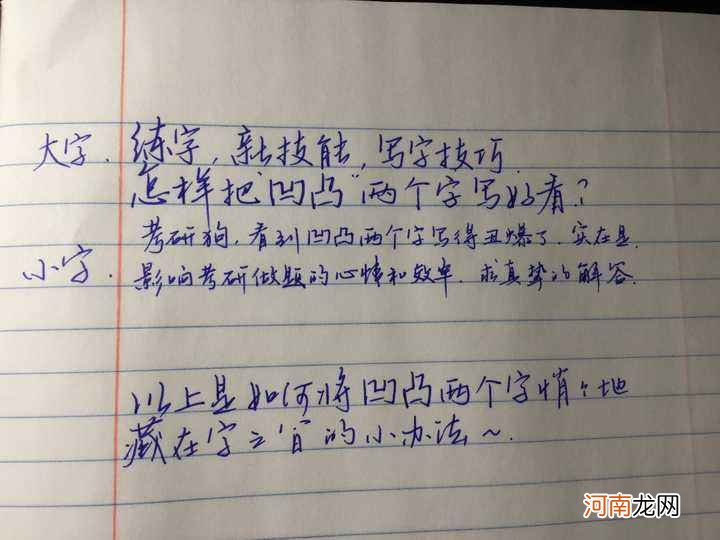 大字. 练字,新技能,写字技巧.
怎样把“凹凸”两个字写好看?
考研狗,看到凹凸两个字写得丑爆了.实在是.
小字. 影响考研做题的心情和效率.求真挚的解答.
以上是如何将凹凸两个字悄々地
藏在字之间的小办法~.
河南龙网